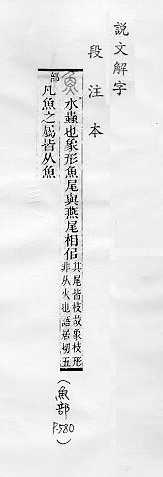 說文解字
段注本
魚水蟲也象形魚尾與燕尾相佀其尾皆枝故象枝形
非从火也語居切五
部凡魚之屬皆从魚
(魚部 P.580)